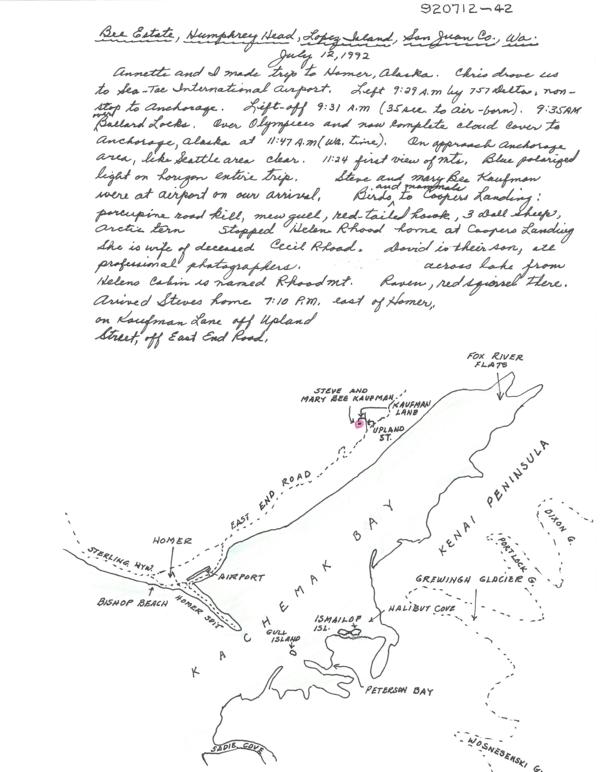 920712-42
Bee Estate, Humphrey Head, Lopez Island, San Juan Co., Wa.
July 12, 1992
Annette and I made trip to Homer, Alaska. Chris drove us
to Sea-Tac International Airport. Left 9:29 A.M by 757 Delta, non-
stop to Anchorage. Lift-off 9:31 A.M (35 sec. to air-born). 9:35 AM
over Ballard Locks. Over Olympics and now complete cloud cover to
Anchorage, Alaska at 11:47 A.M (Wa. time). On approach Anchorage
area, like Seattle area clear. 11:24 first view of Mts. Blue polarized
light on horizon entire trip. Steve and Mary Bee Kaufman
were at airport on our arrival. Birds and mammals to Coopers Landing:
porcupine road kill, mew gull, red-tailed hawk, 3 Dall Sheep,
Arctic tern Stopped Helen Rhood home at Coopers Landing
She is wife of deceased Cecil Rhoad. David is their son, all
professional photographers. across lake from
Helens Cabin is named Rhood Mt. Raven, red squirrel there.
Arived Steves home 7:10 P.M. east of Homer,
on Kaufman Lane off Upland
Street, off East End Road.
FOX RIVER
FLATS
STEVE AND
MARY BEE KAUFMAN
KAUFMAN
LANE
UPLAND
ST.
?
EAST END ROAD
KENAI PENINSULA
DIXON G.
PORTLOCK G.
HOMER
STERLING HYW.
AIRPORT
GREWINGH GLACIER G.
BISHOP BEACH
HOMER SPIT
KACHEMAK BAY
HALIBUT COVE
ISMAILOF
ISL.
GULL
ISLAND
PETERSON BAY
SADIE COVE
WOSNESENSKI G.